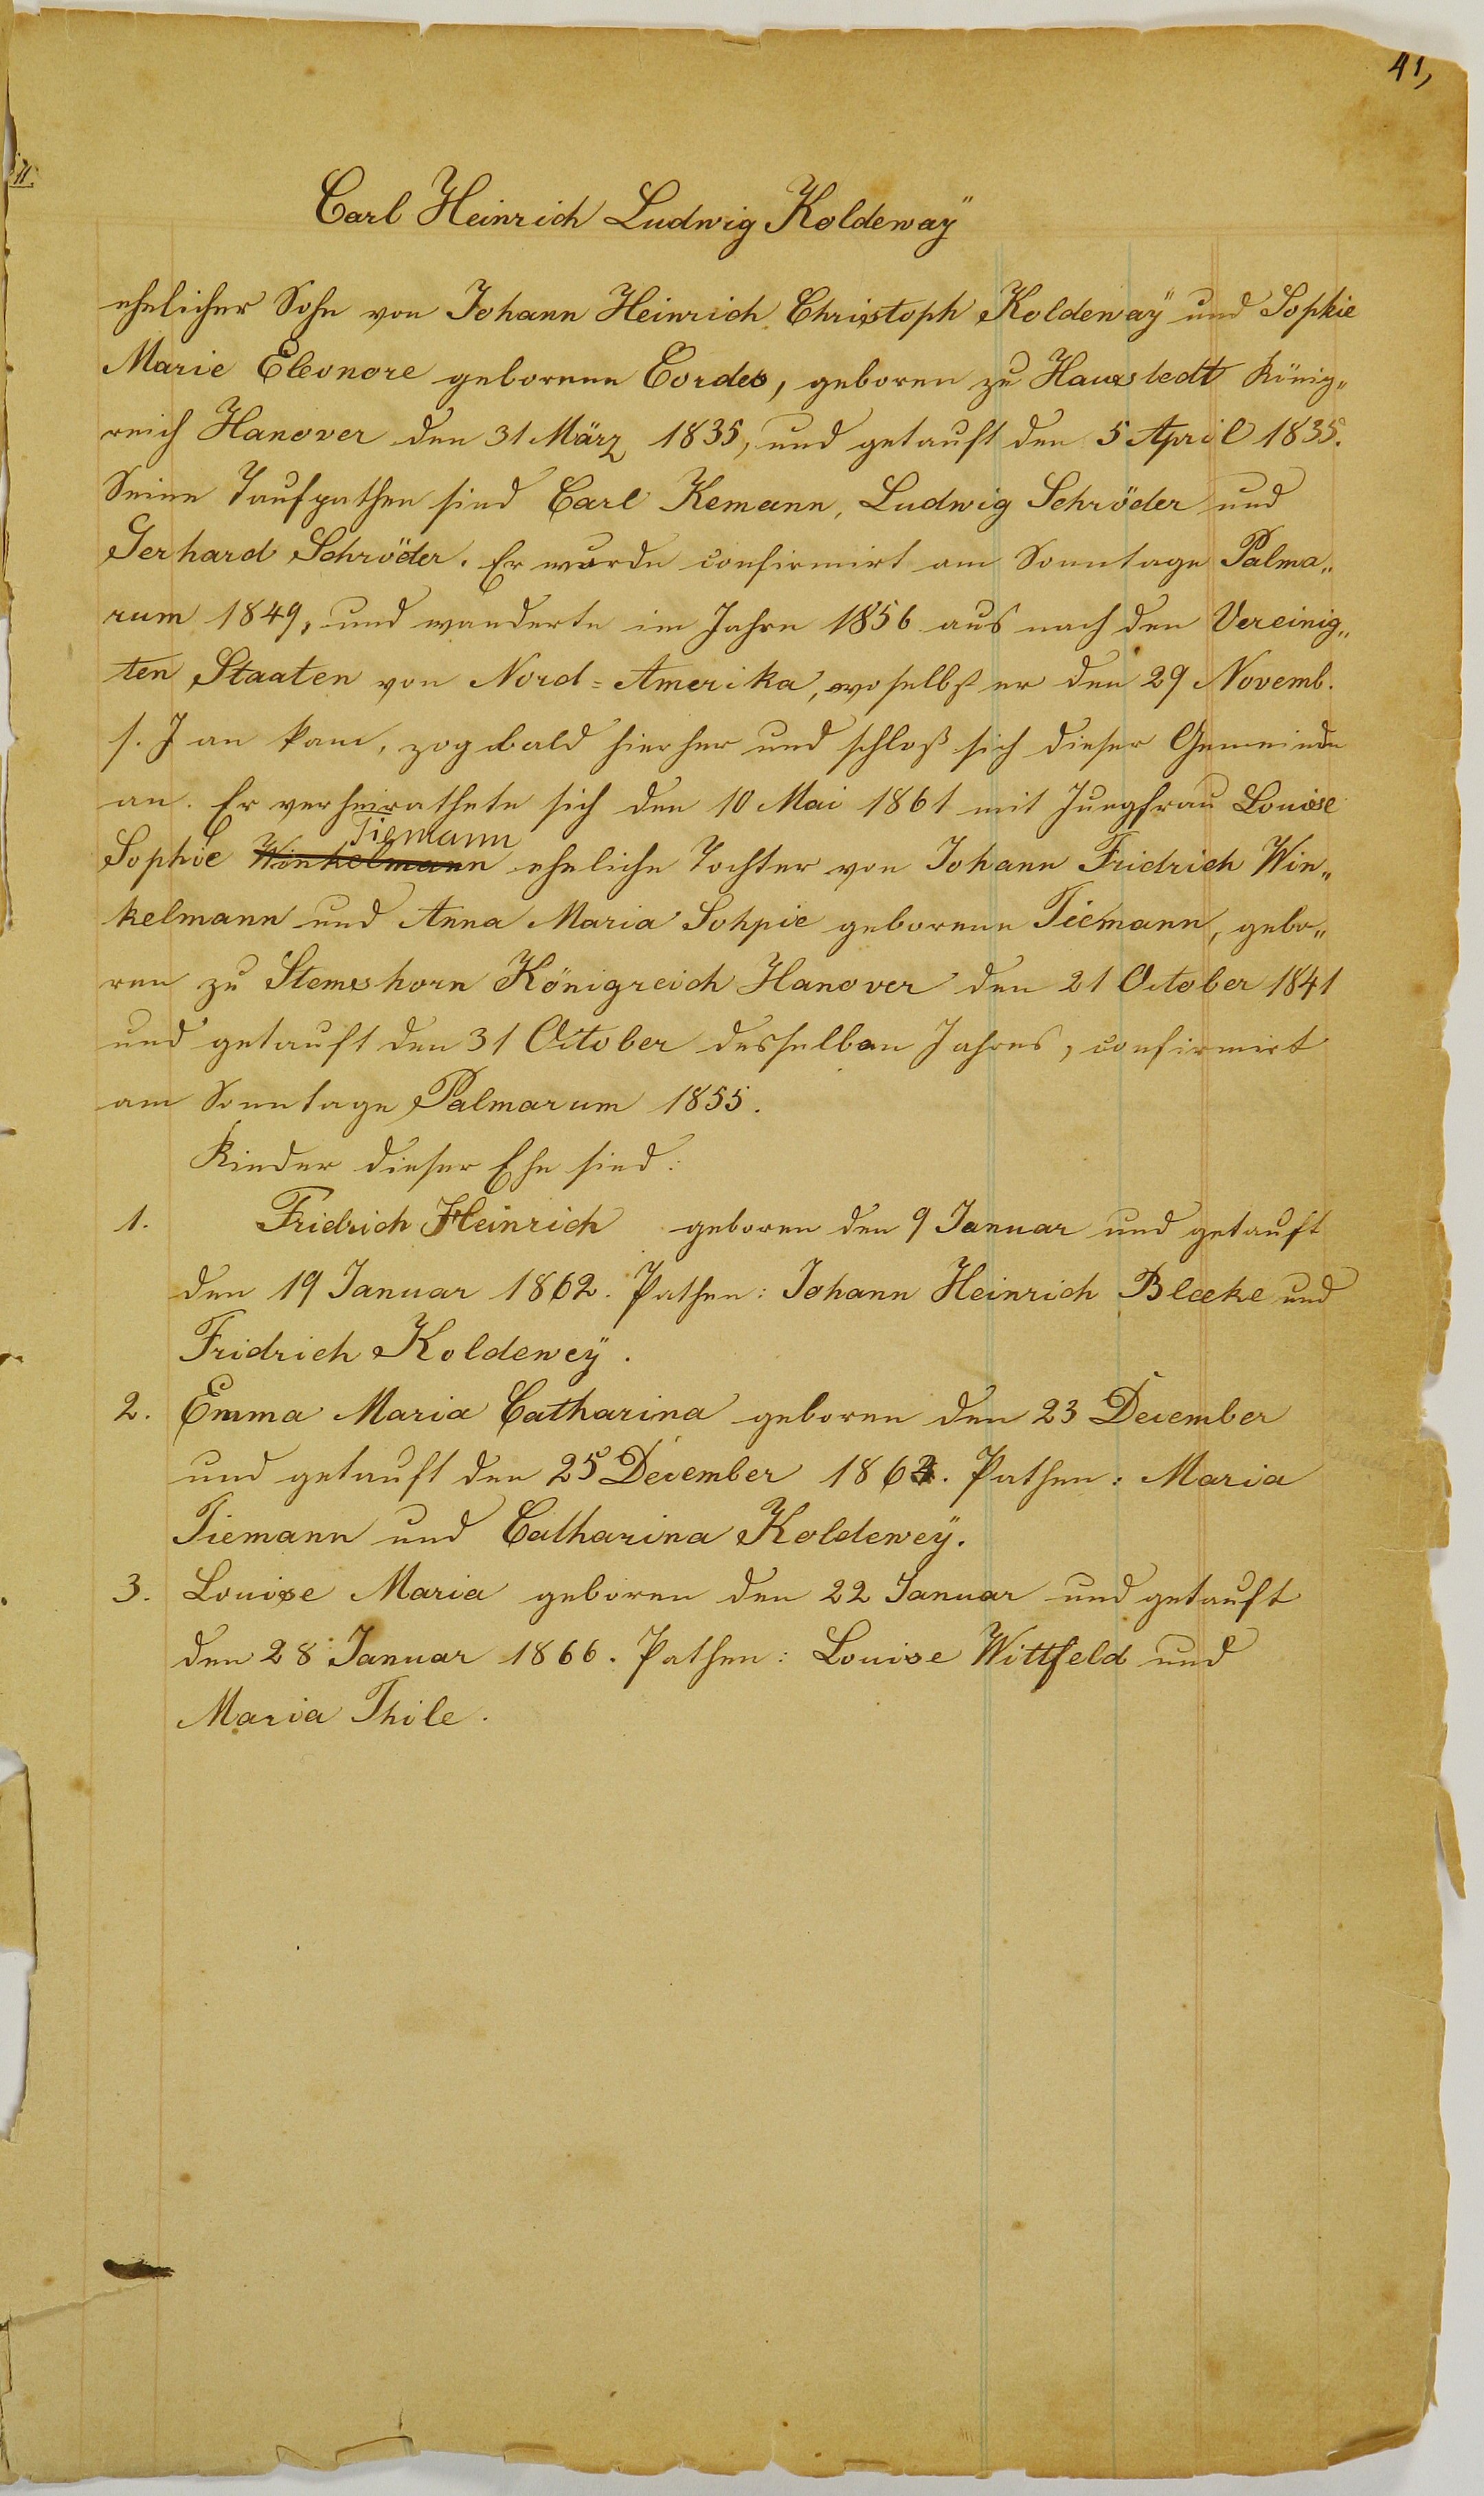 41,
Carl Heinrich Ludwig Koldeway̎
ehelicher Sohn von Johann Heinrich Christoph Koldeway̎ und Sophie
Marie Eleonore geborene Cordes, geboren zu Haustedt König„
reich Hanover den 31 März 1835, und getauft den 5 April 1835.
Seine Taufpathen sind Carl Kemann, Ludwig Schröder und
Gerhard Schröder. Er wurde confirmirt am Sonntage Palma„
rum 1849, und wanderte im Jahre 1856 aus nach den Vereinig„
ten Staaten von Nord=Amerika, woselbst er den 29 Novemb.
s. J an kam, zog bald hierher und schloß sich dieser Gemeinde
an. Er verheirathete sich den 10 Mai 1861 mit Jungfrau Louise
Tiemann
Sophie Winkelmann eheliche Tochter von Johann Fridrich Win„
kelmann und Anna Maria Sohpie geborene Tiemann, gebo„
ren zu Stemshorn Königreich Hanover den 21 October 1841
und getauft den 31 October desselben Jahres, confirmirt
am Sonntage Palmarum 1855.
Kinder dieser Ehe sind:
1. Fridrich Heinrich geboren den 9 Januar und getauft
den 19 Januar 1862. Pathen: Johann Heinrich Bleeke und
Fridrich Koldeweÿ.
2. Emma Maria Catharina geboren den 23 December
und getauft den 25 December 186. Pathen: Maria
Tiemann und Catharina Koldeweÿ.
3. Louise Maria geboren den 22 Januar und getauft
den 28 Januar 1866. Pathen: Louise Wittfeld und
Maria Thile.